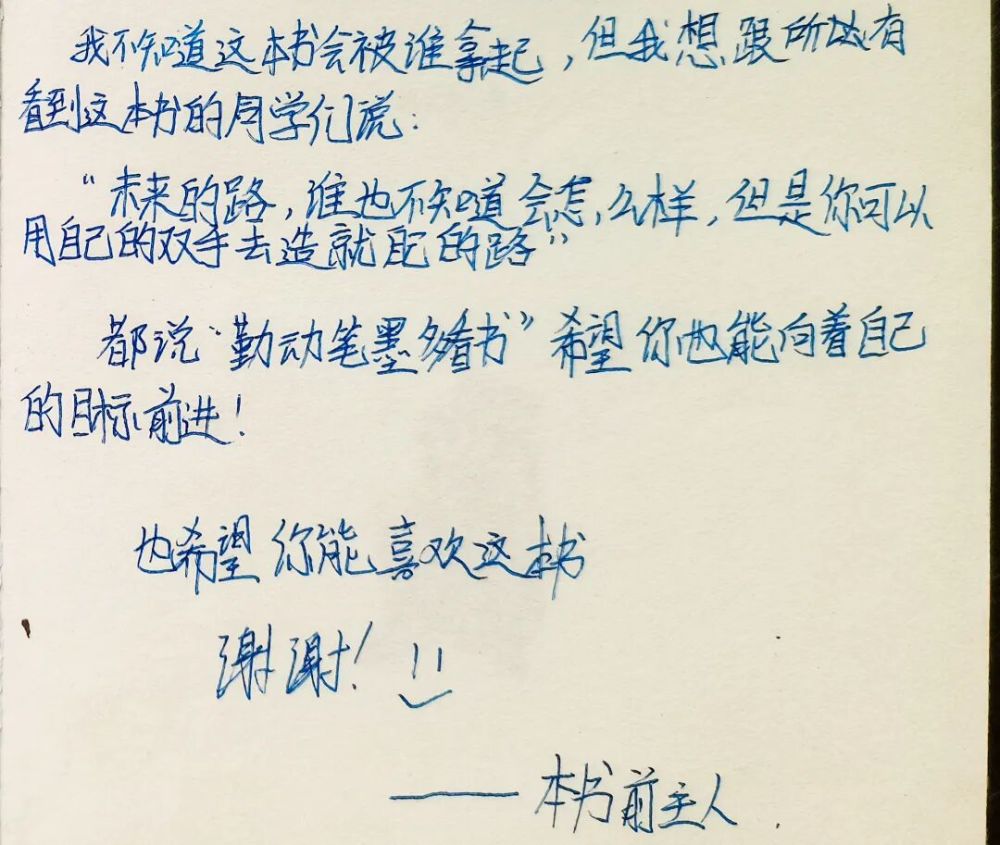 我不知道这本书会被谁拿起，但我想跟所以有
看到这本书的同学们说：
“未来的路，谁也不知道会怎么样，但是你可以
用自己的双手去造就自己的路”
都说“勤动笔墨多看书”希望你也能向着自己
的目标前进！
也希望你能喜欢这本书
谢谢！
——本书前主人.